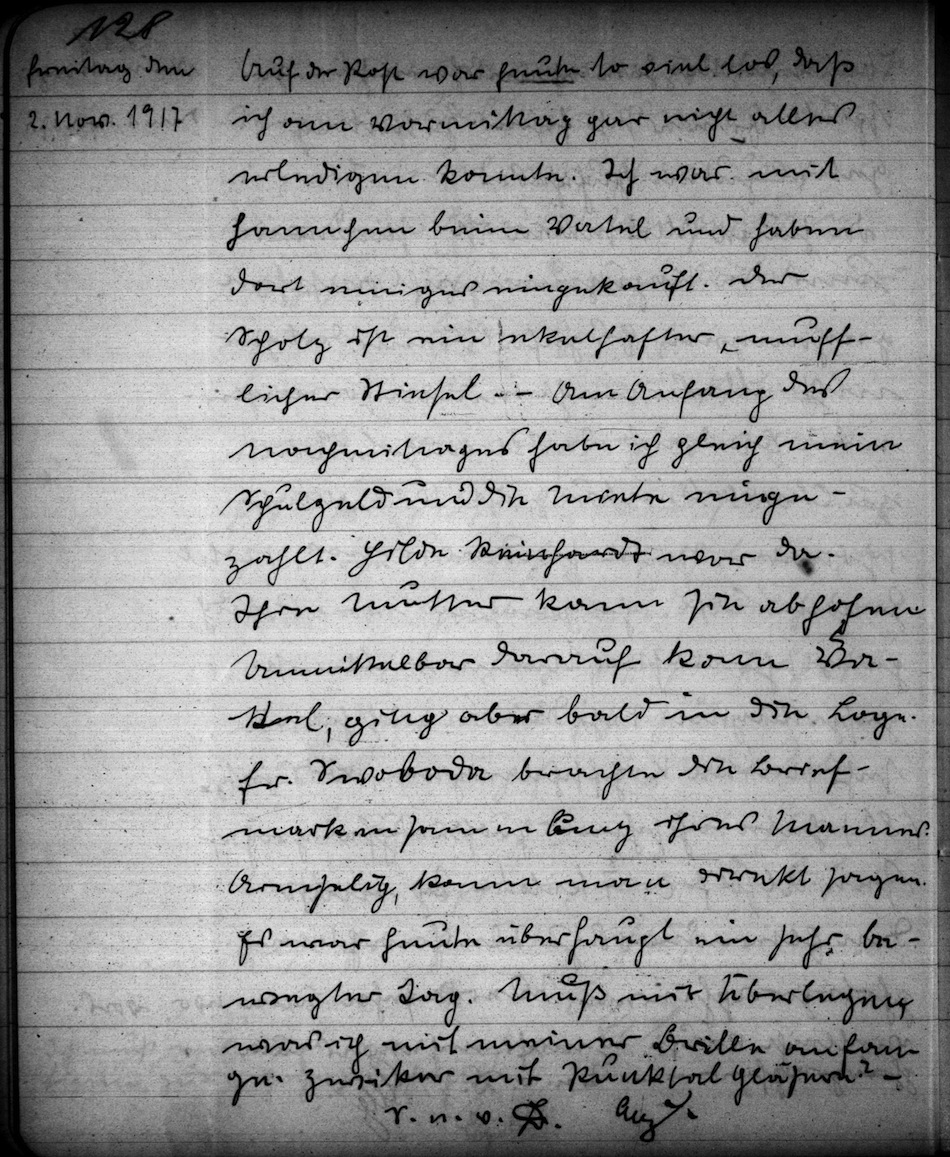 128
Freitag den
2. Nov. 1917
Auf der Post war heute so viel los, daß
ich am Vormittag gar nicht alles
erledigen konnte. Ich war mit
Hannchen beim Vatel und haben
dort einiges eingekauft. Der
Scholz ist ein ekelhafter, muff-
licher Stiesel. – Am Anfang des
Nachmittages habe ich gleich mein
Schulgeld und die Miete einge-
zahlt. Hilde Reinhardt war da.
Ihre Mutter kam sie abholen
Unmittelbar darauf kam Va-
tel, ging aber bald in die Loge.
Fr. Swoboda brachte die Brief-
markensammlung ihres Mannes.
Armselig, kann man direkt sagen.
Es war heute überhaupt ein sehr be-
wegter Tag. Muß mir überlegen,
was ich mit meiner Brille anfan-
ge. Zwicker mit Punktalgläsern? –